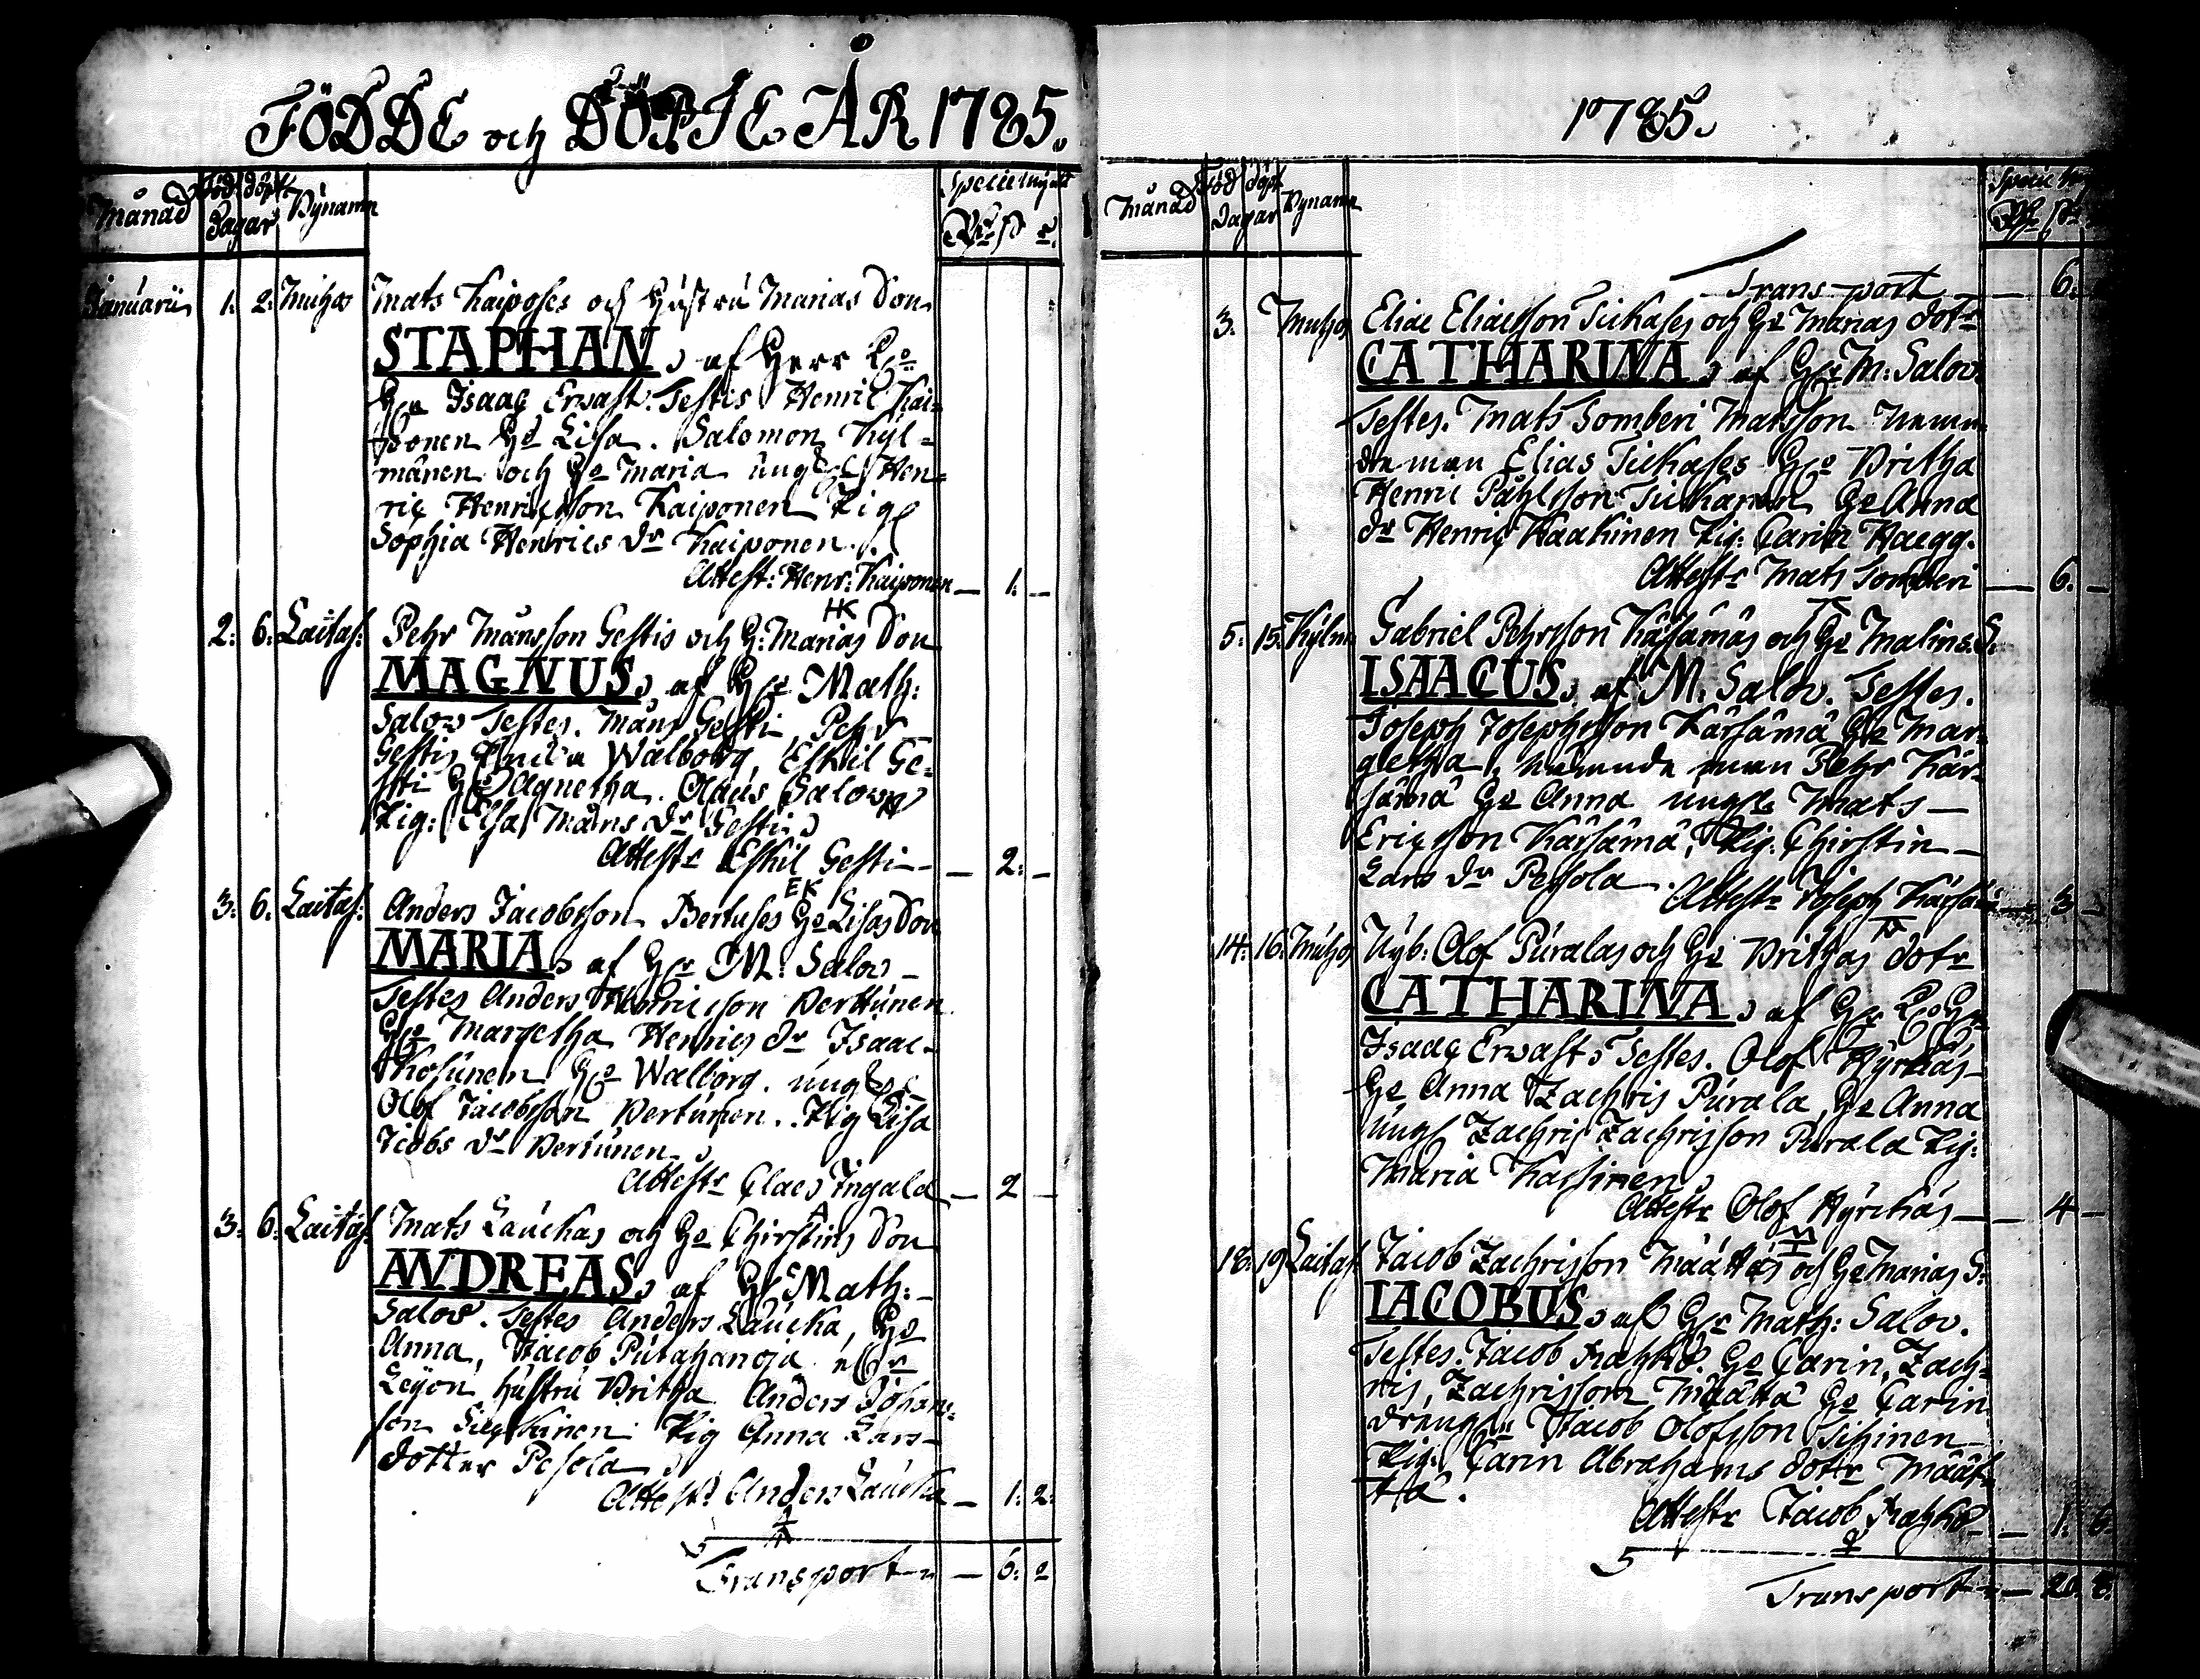 FÖDDE och DÖPTE ÅR 1785.
Månad Född döpt Dagar Bÿnamn Speciemÿnt
Januarii 1. 2. Muhos Mats Kaiposes och Hustru Marias Son
STAPHAN, af Herr
Isaac Erwast. Testis Henric Kai-
ponen He Lisa. Salomon Kÿl-
mänen och He Maria Hen-
ric Henricsson Kaiponen Pig
Sophia Henrics dr Kaiponen.
Attest: Henr: Kaiponen — 1. —
HK
2. 6. Laitas: Pehr Månsson Gestis och H: Marias Son
MAGNUS, af Hr Math:
Salov Testes. Måns Gesti, Pehr
Gestis Walborg, Eskil Ge-
sti He Agnetha. Olaus Salov
Pig: Elsa Måns dr Gesti
Attestr Eskil Gesti — — 2. —
EK
3. 6. Laitas: Anders Jacobsson Bertuses He Lisas Son
MARIA, af Hr M: Salov —
Testes Anders Henricsson Berttunen
He Margetha Henrics dr Isaac
Kosunen He Walborg.
Olof Jacobsson Bertunen. Pig Lisa
Jacobs dr Bertunen
Attestr Claes Ingala — 2 —
A
3. 6. Laitas. Mats Lauckas och He Chirstins Son
ANDREAS, af Hr Math: —
Salov. Testes Anders Laucka, He
Anna, Jacob Putahanoja
Leÿon hustru Britha Anders Johans-
son Pig Anna Lars-
dotter Pesola
Attestr Anders Laucka — 1. 2.
Transport — 6. 2
1785.
Månad Född döpt Dagar Bÿnamn Specie
Transport — 6.
3. Muhos Elias Eliasson Tickases och He Marias dotr
CATHARINA, af Hr M: Salov.
Testes. Mats Somberi Matsson Nemn
deman Elias Tickases He Britha
Henric Påhlsson Tickanen He Anna
dr Henric Kaakinen Pig: Carin Haegg.
Attestr Mats Somberi — 6. —
5. 15. Kÿlm Gabriel Pehrsson Kärsämäs och He Malins S.
ISAACUS, af M. Salov. Testes.
Joseph Josephsson Kärsämä He Mar-
getha, nämnde man Pehr Kär-
sämä He Anna ungk Mats —
Ericsson Kärsämä, Pig. Chirstin —
Lars dr Pesola.
Attestr Joseph Kärsämä — 3 —
14. 16. Muhos Nÿb: Olof Puralas och He Brithas dotr
CATHARINA, af Hr
Isaac Erwast, Testes. Olof Hÿrckäs
He Anna Zachris Purala, He Anna
Zachris Zachrisson Purala Pig:
Maria Kassinen
Attestr Olof Hÿrckäs — — 4 —
18. 19 Laitas Jacob Zachrisson Määttäs och He Marias S.
IACOBUS, af Hr Math: Salov.
Testes. Jacob He Carin, Zach-
ris, Zachrisson Määttä He Carin
dräng Jacob Olofsson Tihinen
Pig. Carin Abrahams dotr Määt-
tä.
Attestr Jacob — 1. 6.
Transport — 20. 8.